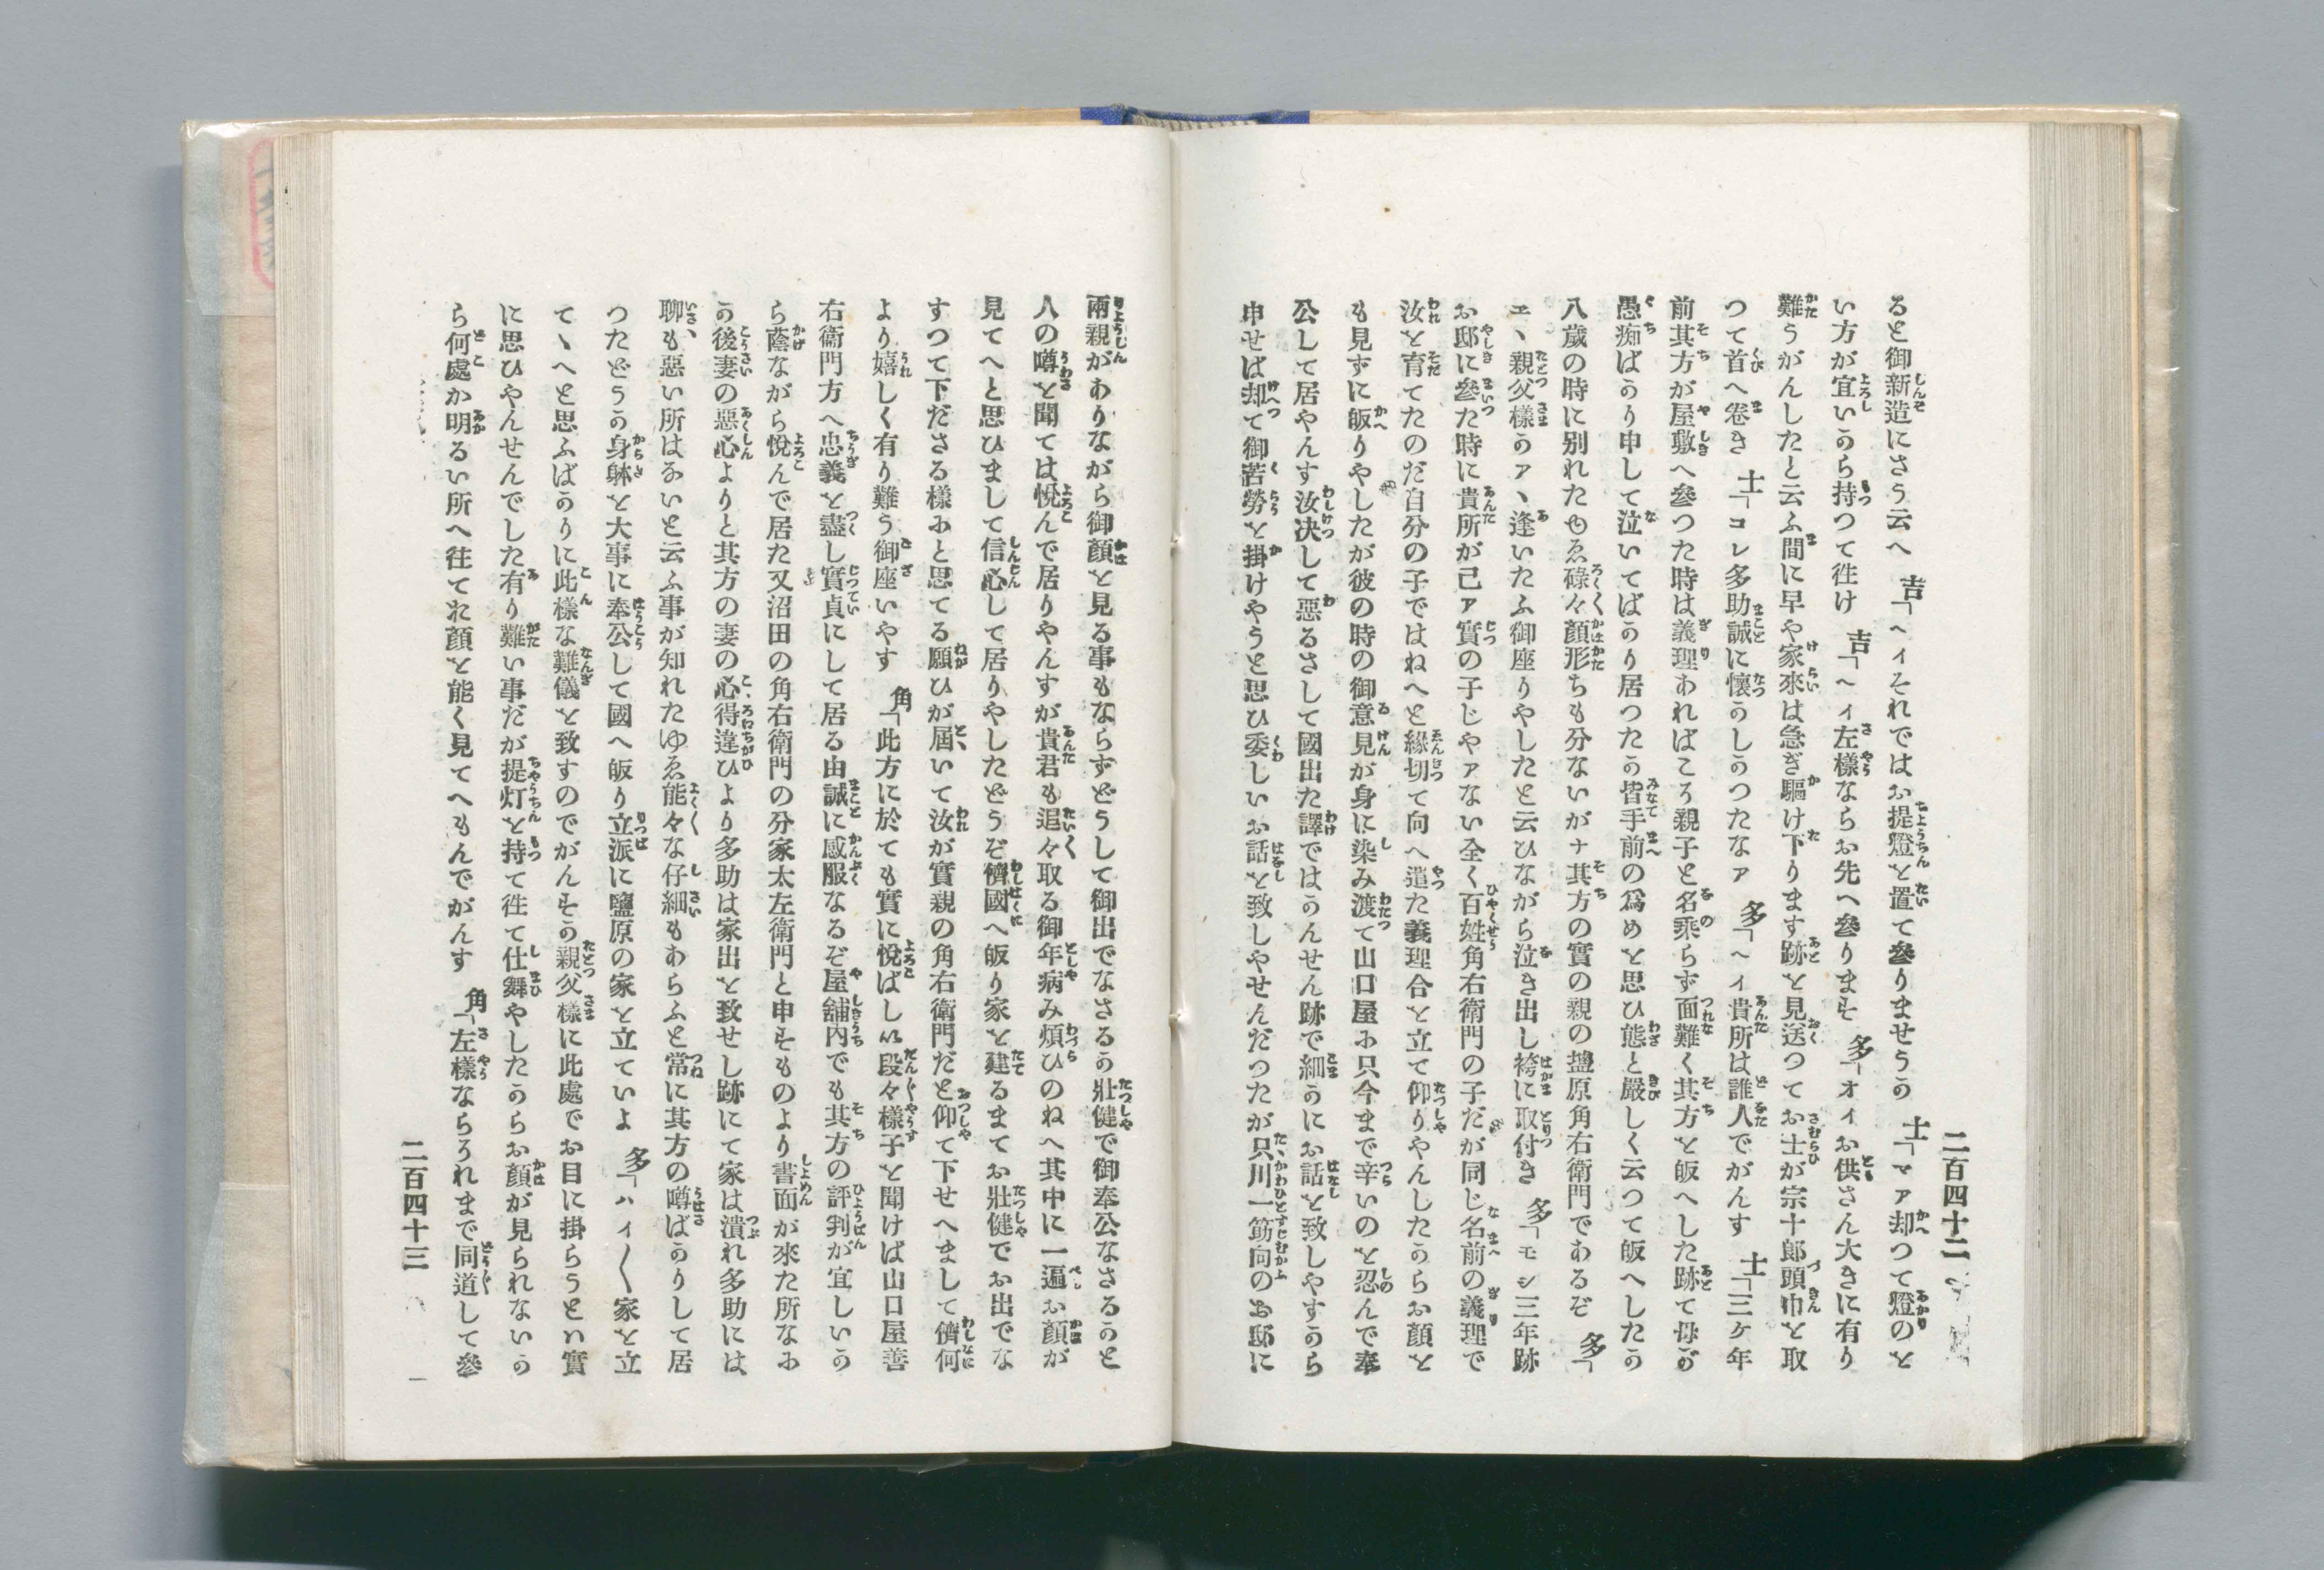 二百四十二
ると御新造にさう云へ 吉「ヘイそれではお提燈を置て參りませうか 士「マア却つて燈のを
い方が宜いから持つて徃け 吉「ヘイ左樣ならお先へ參ります 多「オイお供さん大きに有り
難うがんしたと云ふ間に早や家來は急ぎ驅け下ります跡を見送つてお士が宗十郎頭巾を取
つて首へ卷き 士「コレ多助誠に懷かしかつたなア 多「ヘイ貴所は誰人でがんす 士「三ケ年
前其方が屋敷へ參つた時は義理あればこそ親子と名乘らず面難く其方を皈へした跡て母が
愚痴ばかり申して泣いてばかり居つたか皆手前の爲めと思ひ態と嚴しく云つて皈へしたか
八歲の時に別れたもゑ碌々顏形ちも分ないがナ其方の實の親の鹽原角右衛門であるぞ 多「
エヽ親父樣かアヽ逢いたふ御座りやしたと云ひながら泣き出し袴に取付き 多「モシ三年跡
お邸に參た時に貴所が己ァ實の子じやァない全く百姓角右衛門の子だが同じ名前の義理で
汝を育てたのだ自分の子ではねへと緣切て向へ遣た義理合を立て仰りやんしたからお顏を
も見ずに皈りやしたが彼の時の御意見が身に染み渡て山口屋ふ只今まで辛いのを忍んで奉
公して居やんす汝决して惡るさして國出た譯ではかんせん跡で細かにお話を致しやすから
申せば却て御苦勞を掛けやうと思ひ委しいお話を致しやせんだつたが只川一筋向のお邸に
兩親がありながら御顏を見る事もならずどうして御出でなさるか壯健で御奉公なさるかと
人の噂を聞ては悅んで居りやんすが貴君も追々取る御年病み煩ひのねへ其中に一遍お顏が
見てへと思ひまして信心して居りやしたどうぞ儕國へ皈り家を建るまてお壯健でお出でな
すつて下ださる樣ふと思てる願ひが屆いて汝が實親の角右衛門だと仰て下せへまして儕何
より嬉しく有り難う御座いやす 角「此方に於ても實に悅ばしい段々樣子を聞けば山口屋善
右衞門方へ忠義を盡し實貞にして居る由誠に感服なるぞ屋舖內でも其方の評判が宜しいか
ら蔭ながら悅んで居た又沼田の角右衛門の分家太左衛門と申すものより書面が來た所なふ
か後妻の惡心よりと其方の妻の心得違ひより多助は家出を致せし跡にて家は潰れ多助には
聊も惡い所はないと云ふ事が知れたゆゑ能々な仔細もあらふと常に其方の噂ばかりして居
つたどうか身躰を大事に奉公して國へ皈り立派に鹽原の家を立ていよ 多「ハイ〳〵家を立
てヽへと思ふばかりに此樣な難儀を致すのでがんすか親父樣に此處でお目に掛らうとい實
に思ひやんせんでした有り難い事だが提灯を持て徃て仕舞やしたからお顏が見られないか
ら何處か明るい所へ徃てお顏を能く見てへもんでがんす 角「左樣ならそれまで同道して參
二百四十三